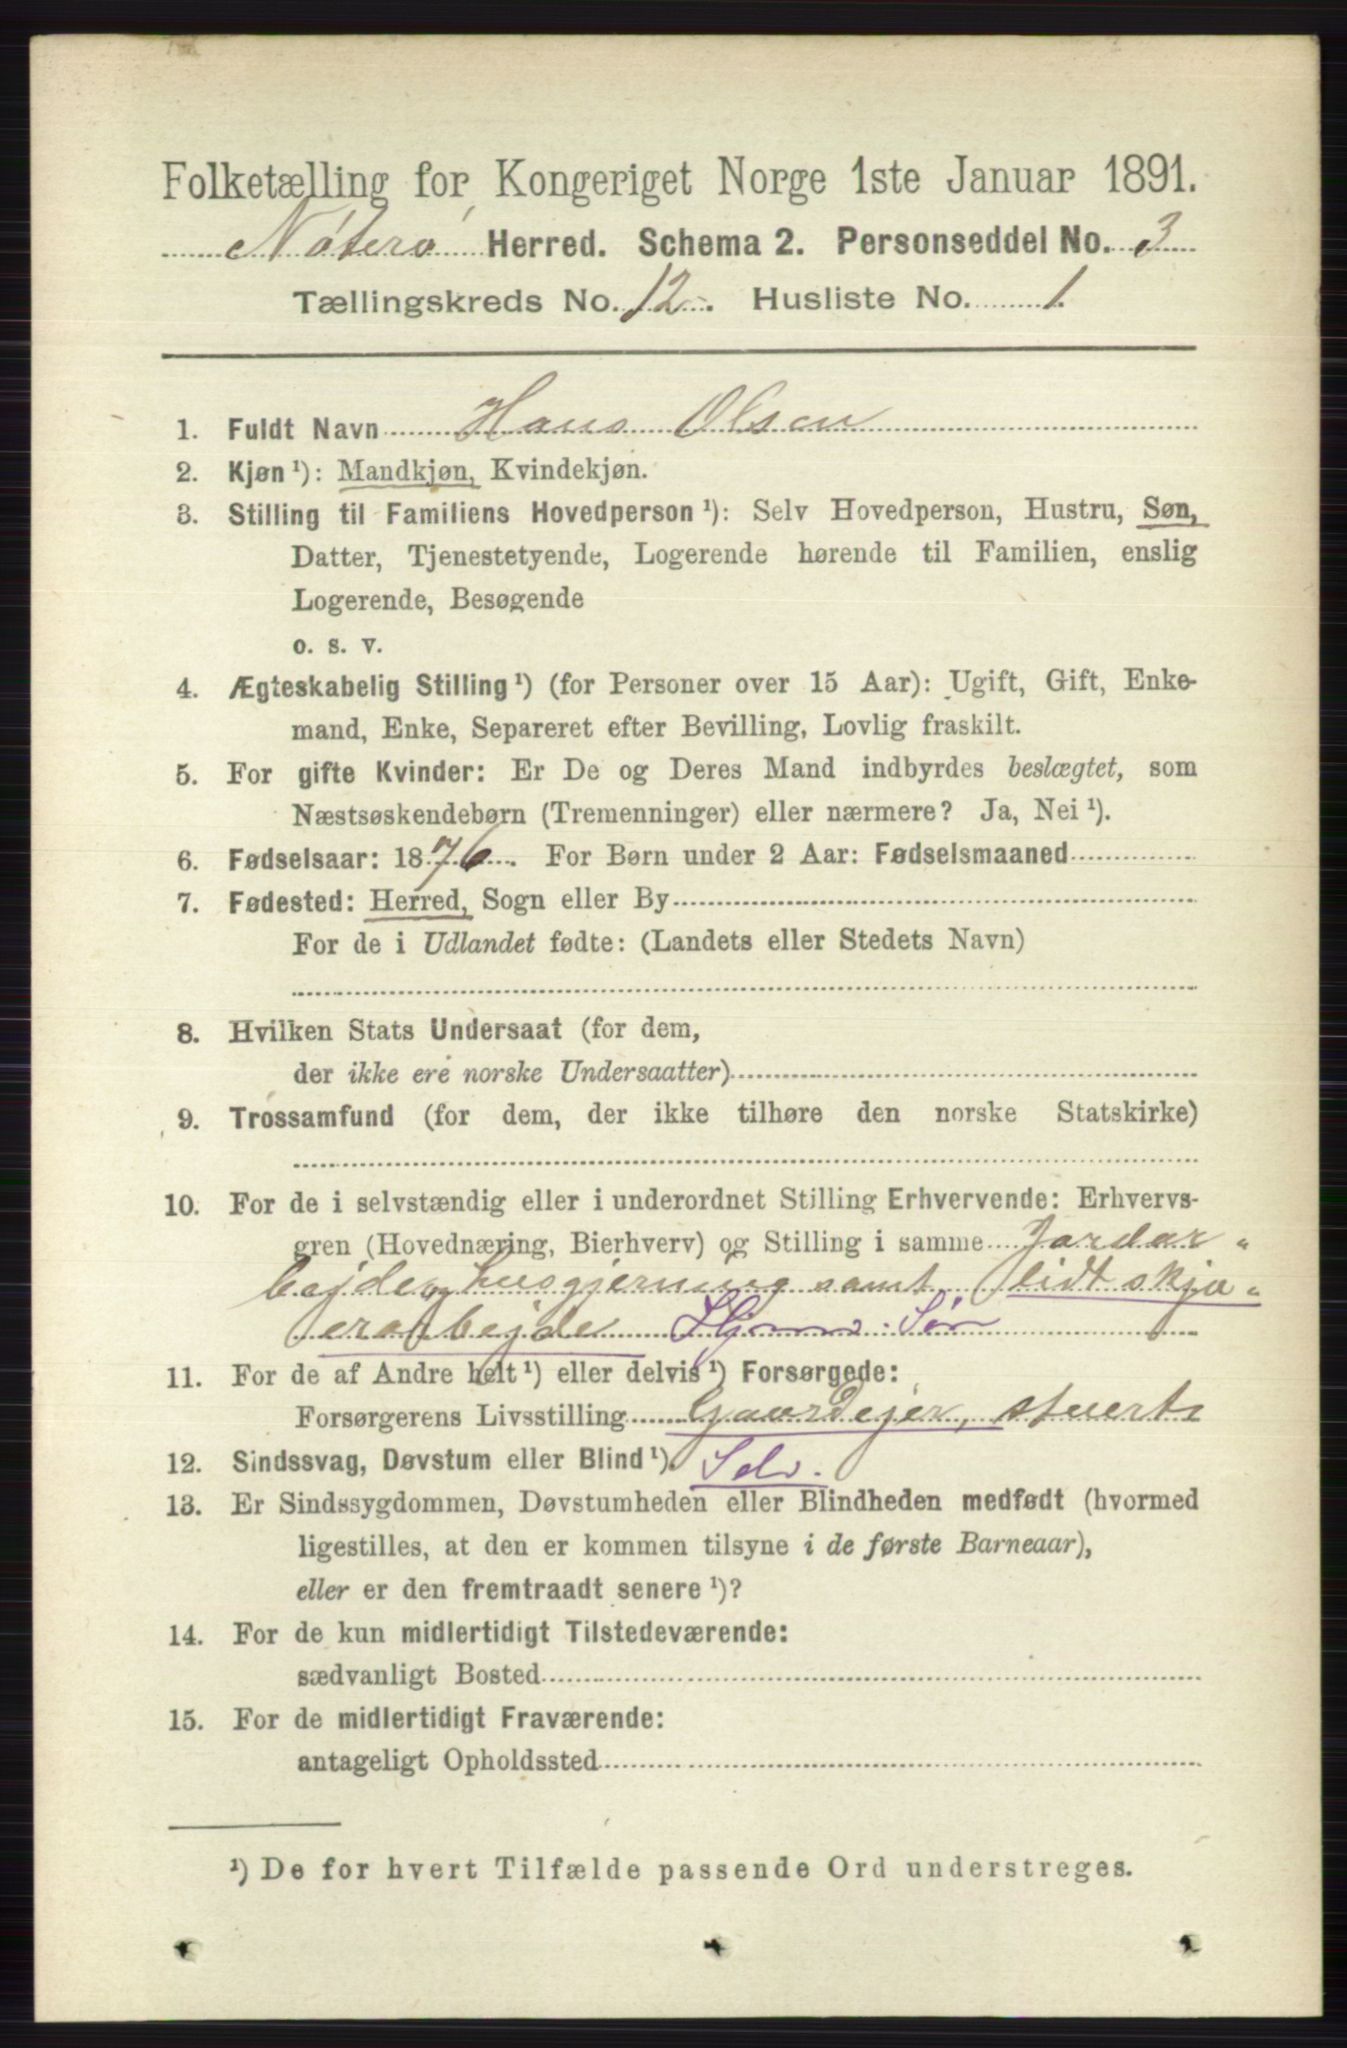 Folketælling for Kongeriget Norge 1ste Januar 1891.
Nøterø Herred. Schema 2. Personseddel No. 3
Tællingskreds No. 12. Husliste No. 1.
1. Fuldt Navn Hans Olsen
2. Kjøn ¹): Mandkjøn, Kvindekjøn.
3. Stilling til Familiens Hovedperson ¹): Selv Hovedperson, Hustru, Søn,
Datter, Tjenestetyende, Logerende hørende til Familien, enslig
Logerende, Besøgende
o. s. v.
4. Ægteskabelig Stilling ¹) (for Personer over 15 Aar): Ugift, Gift, Enke-
mand, Enke, Separeret efter Bevilling, Lovlig fraskilt.
5. For gifte Kvinder: Er De og Deres Mand indbyrdes beslægtet, som
Næstsøskendebørn (Tremenninger) eller nærmere? Ja, Nei ¹).
6. Fødselsaar: 1876. For Børn under 2 Aar: Fødselsmaaned
7. Fødested: Herred, Sogn eller By
For de i Udlandet fødte: (Landets eller Stedets Navn)
8. Hvilken Stats Undersaat (for dem,
der ikke ere norske Undersaatter)
9. Trossamfund (for dem, der ikke tilhøre den norske Statskirke)
10. For de i selvstændig eller i underordnet Stilling Erhvervende: Erhvervs-
gren (Hovednæring, Bierhverv) og Stilling i samme Jordar-
bejde og husgjerning samt lidt skjø-
erarbejde Hjemv. Søn
11. For de af Andre helt ¹) eller delvis ¹) Forsørgede:
Forsørgerens Livsstilling Gaardejer, stuert
12. Sindssvag, Døvstum eller Blind ¹). Selv.
13. Er Sindssygdommen, Døvstumheden eller Blindheden medfødt (hvormed
ligestilles, at den er kommen tilsyne i de første Barneaar),
eller er den fremtraadt senere ¹)?
14. For de kun midlertidigt Tilstedeværende:
sædvanligt Bosted
15. For de midlertidigt Fraværende:
antageligt Opholdssted
¹) De for hvert Tilfælde passende Ord understreges.